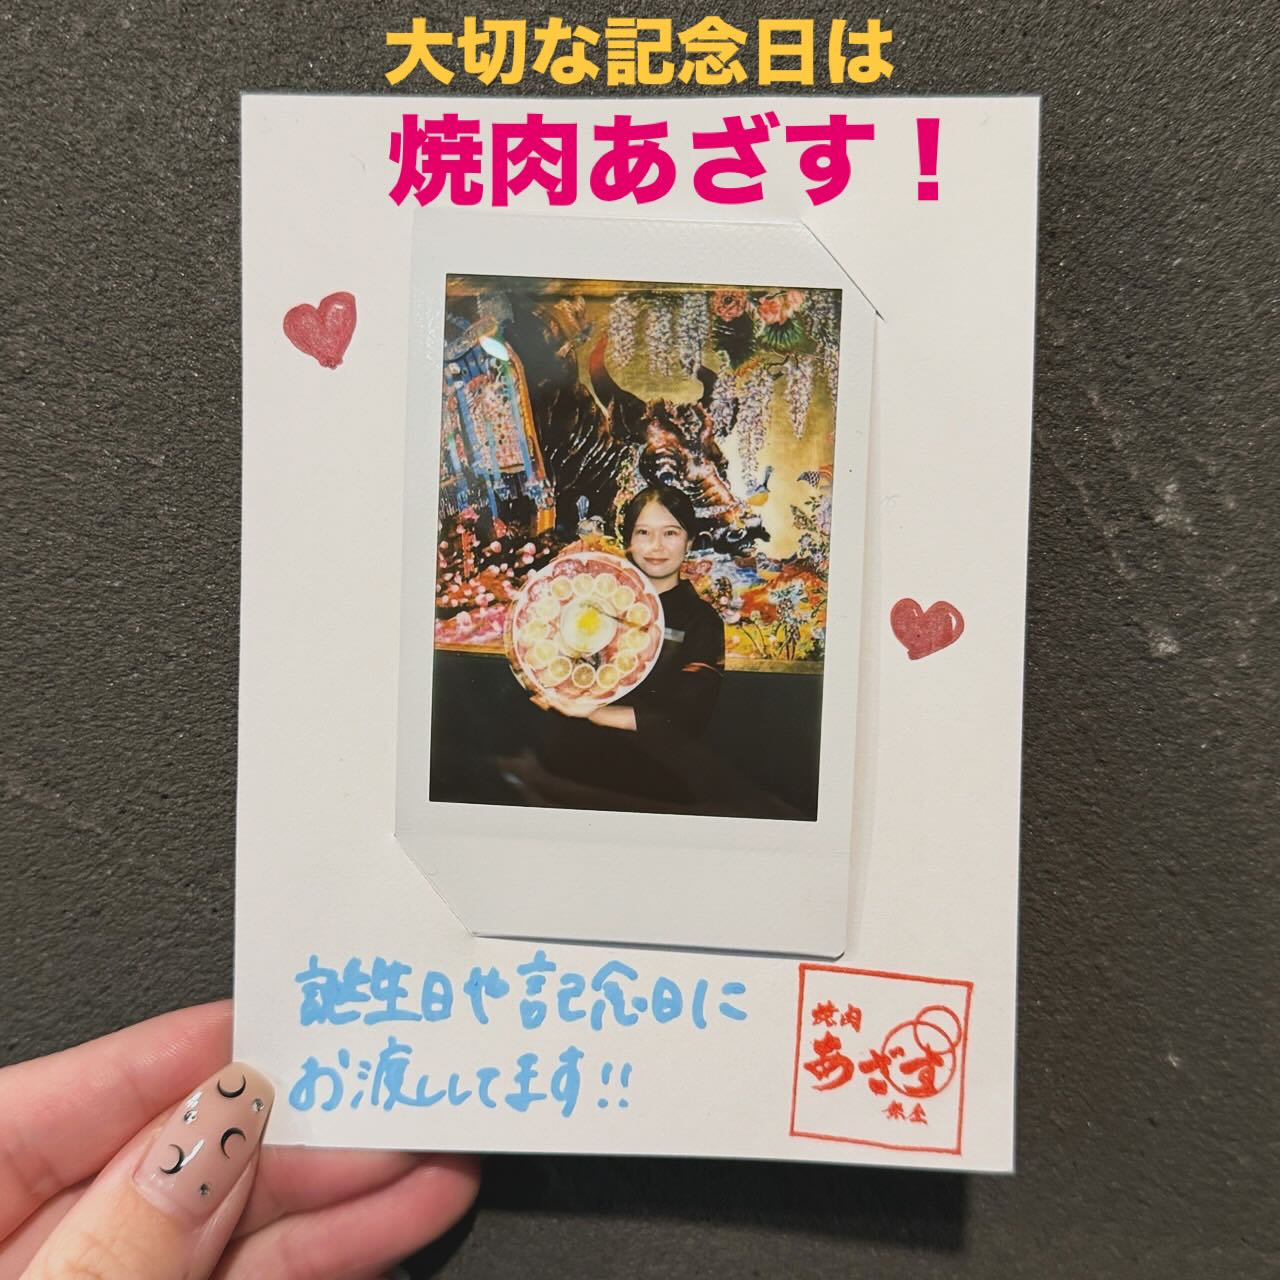 大切な記念日は
焼肉あざす！
誕生日や記念日に
お渡ししてます!!
焼肉
あざす